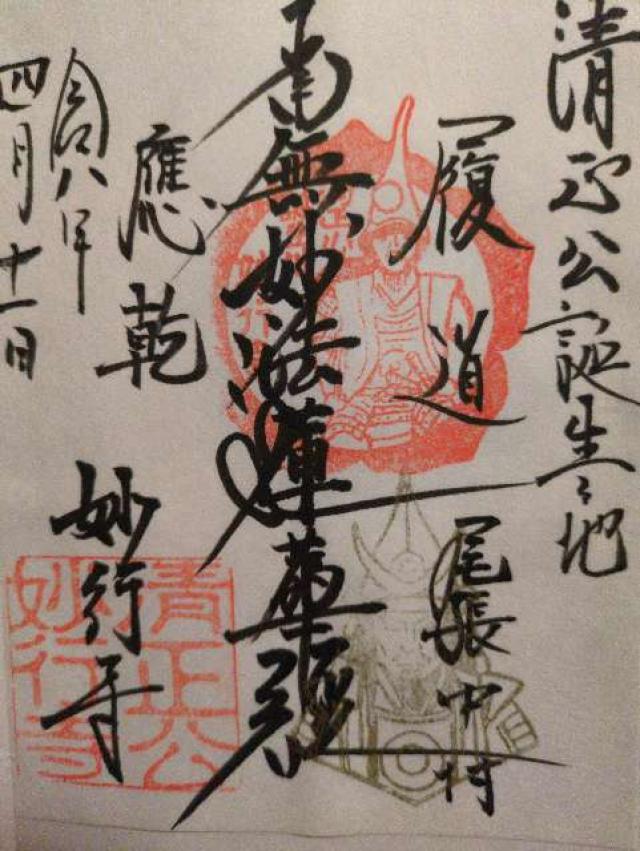 清正公誕生之地
履道
尾張中村
南無妙法蓮華經
應乾
妙行寺
令和八年
四月十一日
清正公
妙行寺